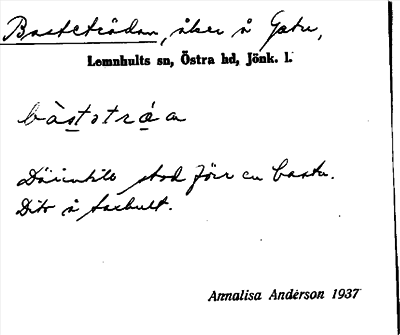 Bastetrådan, åker å Gatu,
Lemnhults sn, Östra hd, Jönk. l.
bàstotráa
Därintill stod förr en bastu.
Dito å
Annalisa Anderson 1937